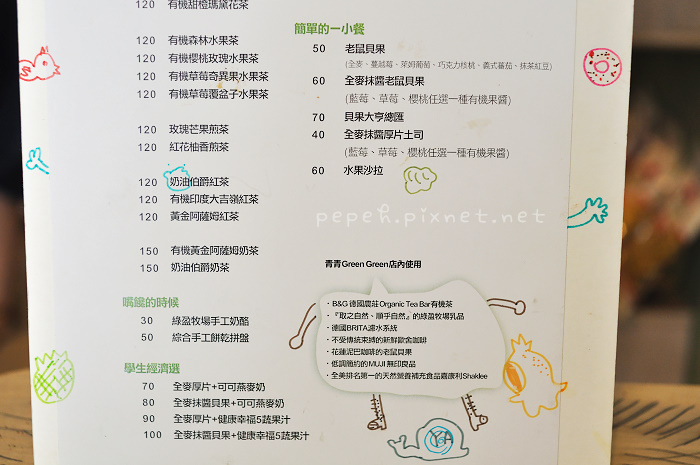 120 有機甜橙瑪黛花茶
120 有機森林水果茶
120 有機櫻桃玫瑰水果茶
120 有機草莓奇異果水果茶
120 有機草莓覆盆子水果茶
120 玫瑰芒果煎茶
120 紅花柚香煎茶
120 奶油伯爵紅茶
120 有機印度大吉嶺紅茶
120 黃金阿薩姆紅茶
150 有機黃金阿薩姆奶茶
150 奶油伯爵奶茶
嘴饞的時候
30 綠盈牧場手工奶酪
50 綜合手工餅乾拼盤
學生經濟選
70 全麥厚片+可可燕麥奶
80 全麥抹醬貝果+可可燕麥奶
90 全麥厚片+健康幸福5蔬果汁
100 全麥抹醬貝果+健康幸福5蔬果汁
簡單的一小餐
50 老鼠貝果
(全麥、蔓越莓、萊姆葡萄、巧克力核桃、義式蕃茄、抹茶紅豆)
60 全麥抹醬老鼠貝果
(藍莓、草莓、櫻桃任選一種有機果醬)
70 貝果大亨總匯
40 全麥抹醬厚片土司
(藍莓、草莓、櫻桃任選一種有機果醬)
60 水果沙拉
pepeh.pixnet.net
青青Green Green店內使用
· B&G 德國農莊Organic Tea Bar有機茶
· 『取之自然、順乎自然』的綠盈牧場乳品
· 德國BRITA濾水系統
· 不受傳統束縛的新鮮歐舍咖啡
· 花蓮泥巴咖啡的老鼠貝果
· 低調簡約的MUJI 無印良品
· 全美排名第一的天然營養補充食品嘉康利Shaklee
YA